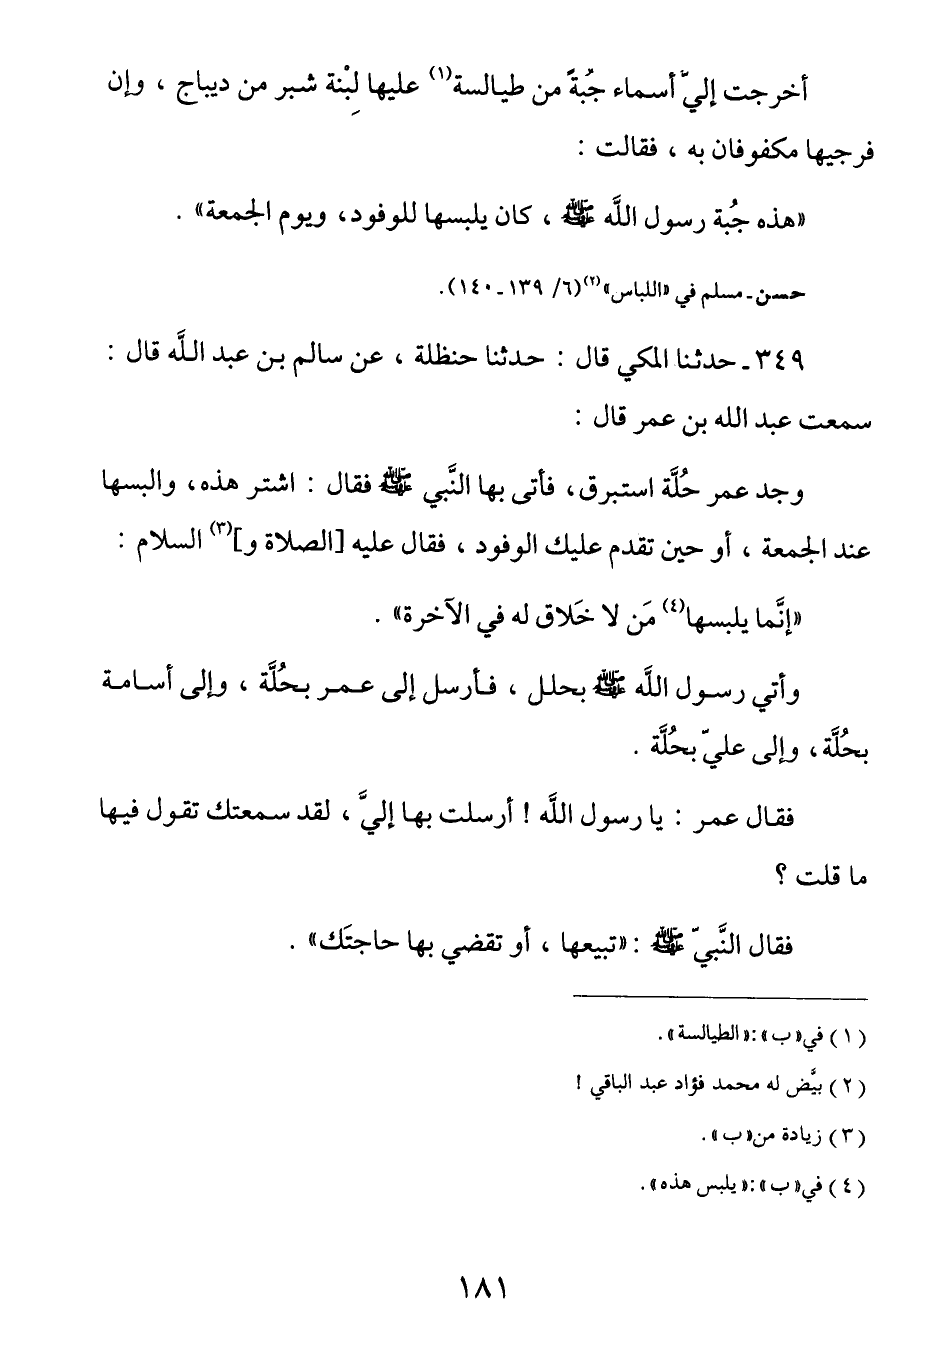 أخرجت إليّ أسماء جُبةً من طيالسة(١) عليها لِبْنة شبر من ديباج ، وإن
فرجيها مكفوفان به ، فقالت :
«هذه جُبة رسول اللَّه ﷺ ، كان يلبسها للوفود، ويوم الجمعة» .
حسن ـ مسلم في «اللباس»(٢)(٦/ ١٣٩ ـ ١٤٠).
٣٤٩ ـ حدثنا المكي قال : حدثنا حنظلة ، عن سالم بن عبد اللَّه قال :
سمعت عبد الله بن عمر قال :
وجد عمر حُلَّة استبرق، فأتى بها النَّبي ﷺ فقال : اشتر هذه، والبسها
عند الجمعة ، أو حين تقدم عليك الوفود ، فقال عليه [الصلاة و](٣) السلام :
«إنَّما يلبسها(٤) مَن لا خَلاق له في الآخرة» .
وأتي رسول اللَّه ﷺ بحلل ، فأرسل إلى عمر بحُلَّة ، وإلى أسامة
بحُلَّة، وإلى عليّ بحُلَّة .
فقال عمر : يا رسول اللَّه ! أرسلت بها إليَّ ، لقد سمعتك تقول فيها
ما قلت ؟
فقال النَّبيّ ﷺ : «تبيعها ، أو تقضي بها حاجتَك» .
(١) في«ب»:«الطيالسة».
(٢) بيَّض له محمد فؤاد عبد الباقي !
(٣) زيادة من«ب».
(٤) في«ب»:«يلبس هذه».
١٨١